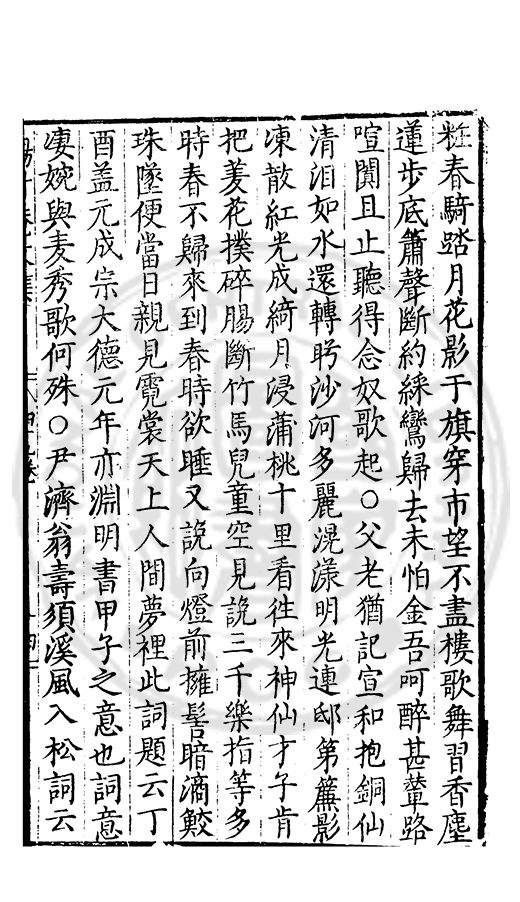 粧春騎踏月花影于旗穿市望不盡樓歌舞習香塵
蓮步底簫聲斷約綵鸞歸去未怕金吾呵醉甚輦路
喧闐且止聽得念奴歌起○父老猶記宣和抱銅仙
清泪如水還轉盻沙河多麗滉漾明光連邸第簾影
凍散紅光成綺月浸蒲桃十里看徃來神仙才子肯
把菱花撲碎腸斷竹馬兒童空見說三千樂指等多
時春不歸來到春時欲睡又說向燈前擁髻暗滴鮫
珠墜便當日親見霓裳天上人間夢裡此詞題云丁
酉盖元成宗大德元年亦淵明書甲子之意也詞意
凄婉與麦秀歌何殊○尹濟翁壽須溪風入松詞云